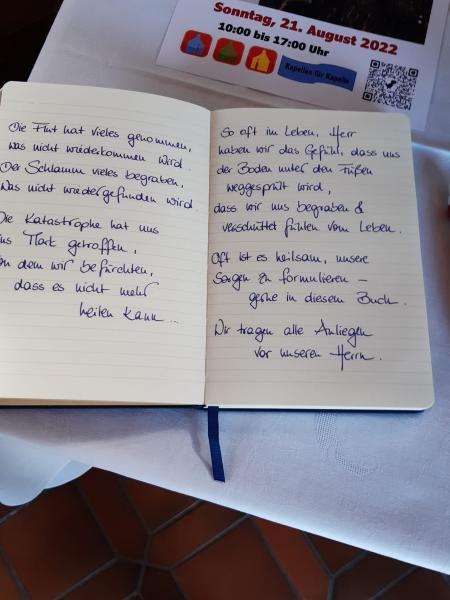 Sonntag, 21. August 2022
10:00 bis 17:00 Uhr
Kapellen für Kapelle
Die Flut hat vieles genommen,
was nicht wiederkommen wird.
Der Schlamm vieles begraben,
was nicht wiedergefunden wird
Die Katastrophe hat uns
ins Mark getroffen,
von dem wir befürchten,
dass es nicht mehr
heilen kann ...
So oft im Leben, Herr
haben wir das Gefühl, dass uns
der Boden unter den Füßen
weggespült wird,
dass wir uns begraben &
verschüttet fühlen vom Leben.
Oft ist es heilsam, unsere
Sorgen zu formulieren –
gerne in diesem Buch.
Wir tragen alle Anliegen
vor unseren Herrn.